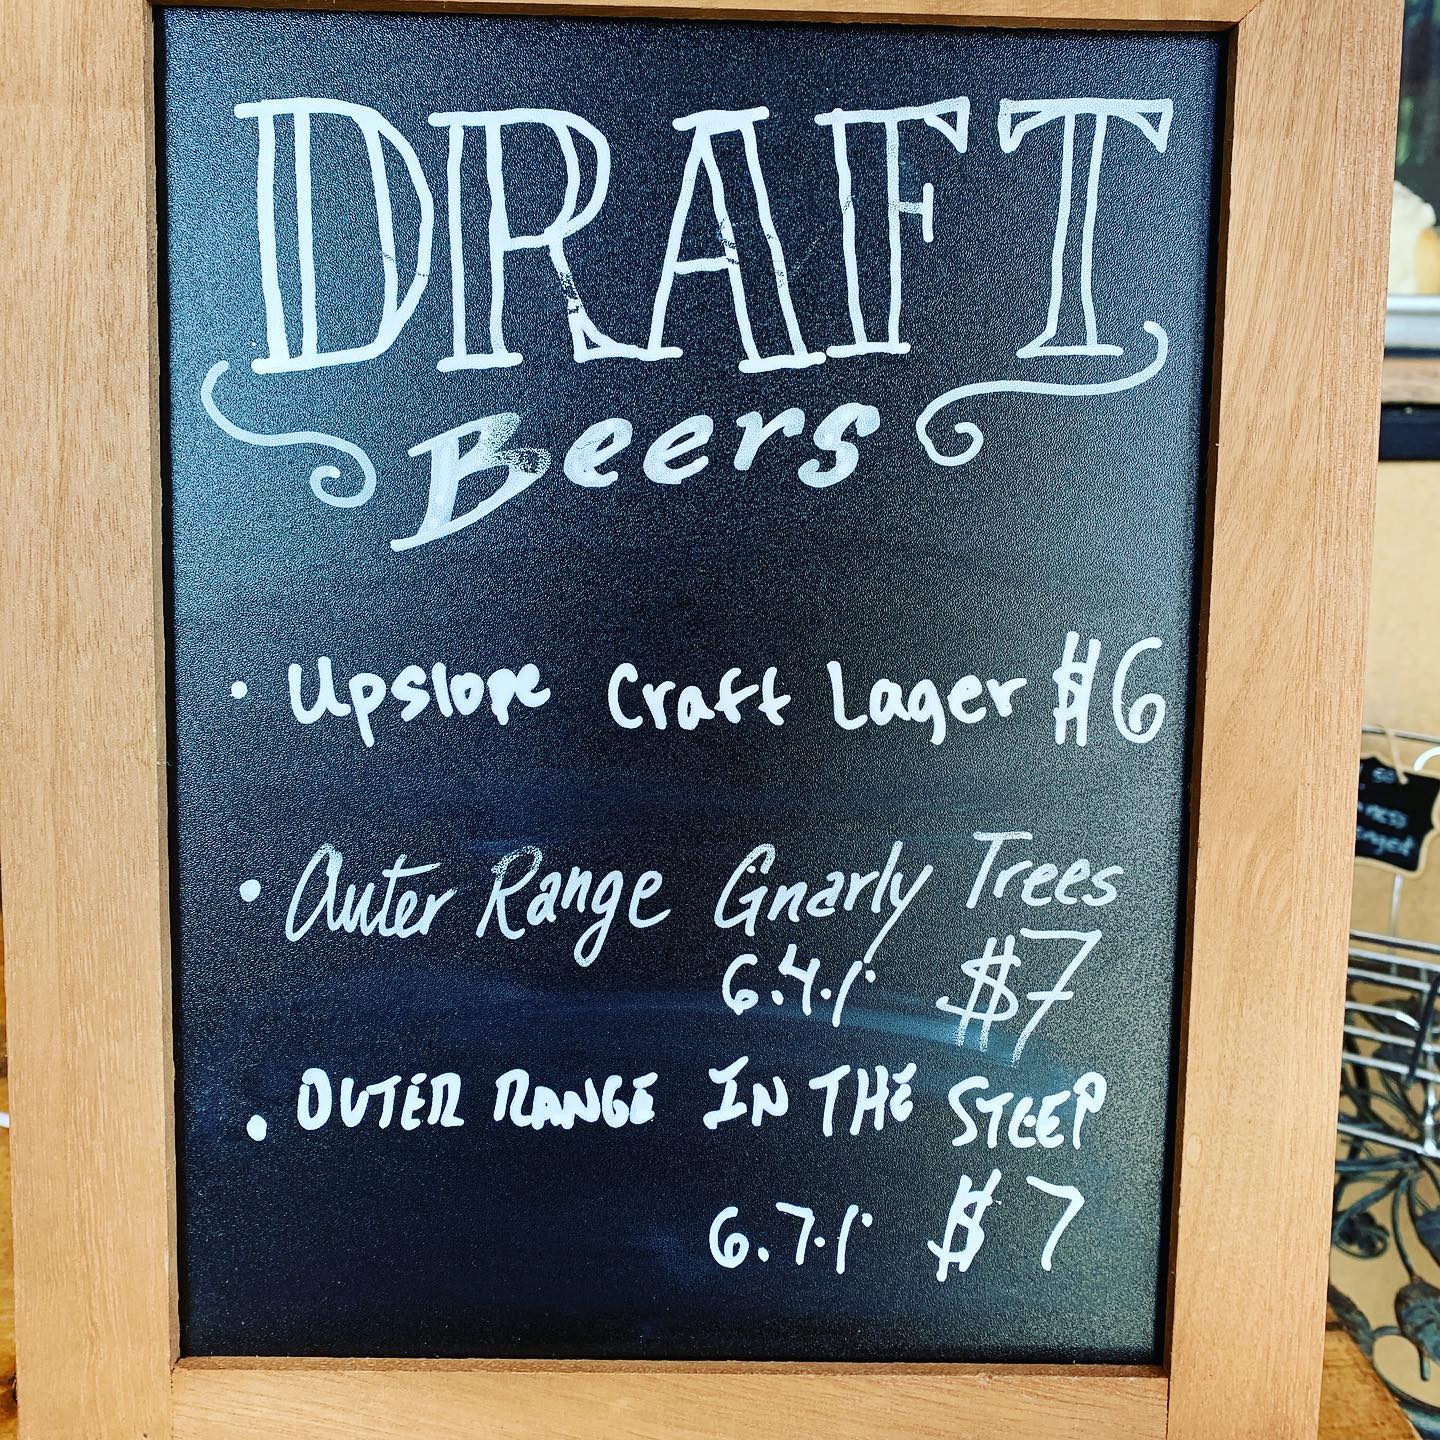 DRAFT
Beers
• Upslope Craft Lager $6
• Outer Range Gnarly Trees
6.4% $7
• OUTER RANGE IN THE STEEP
6.7% $7